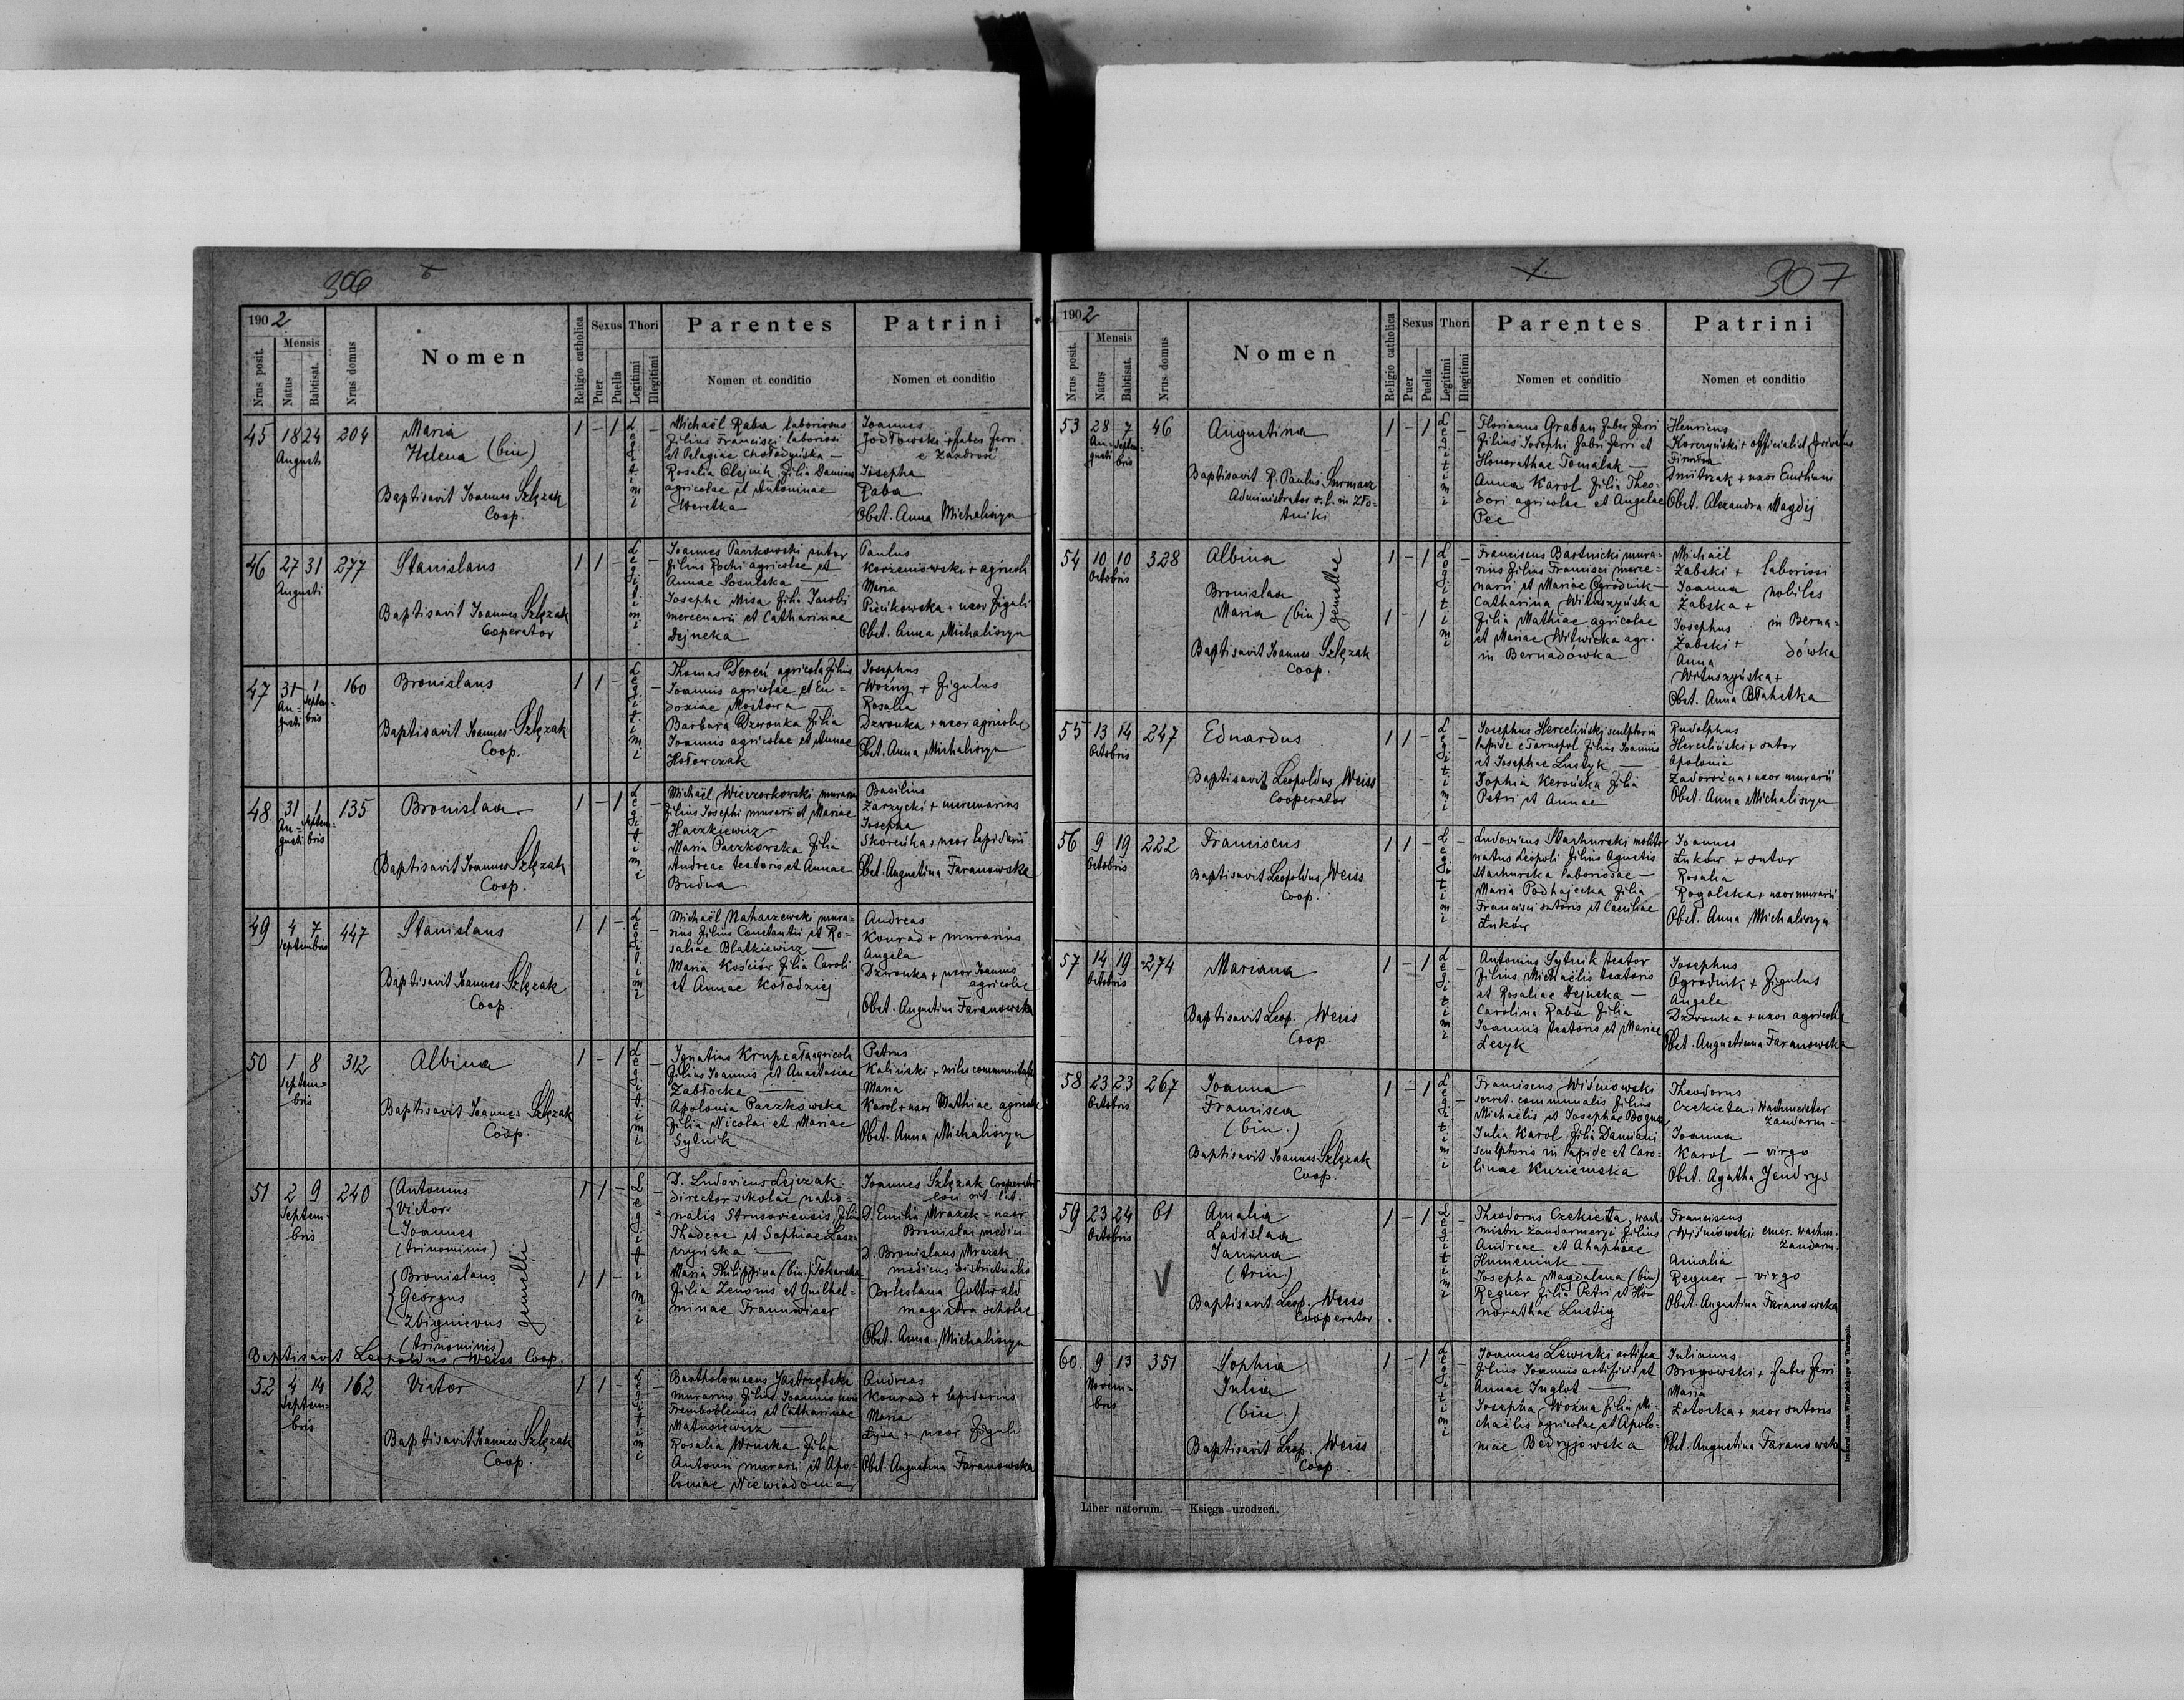 306
1902
Nrus posit.
Mensis
Natus
Babtisat.
Nrus domus
Nomen
Religio catholica
Sexus
Puer
Puella
Thori
Legitimi
Illegitimi
Parentes
Nomen et conditio
Patrini
Nomen et conditio
45 18 24 204
Augusti
Maria
Helena (bin)
Baptisavit Joannes Szlęzak
Coop.
1 – 1 Legitimi –
Michaël Raba laboriosus
filius Francisci laboriosi
et Pelagiae Chołodyńska —
Rosalia Olejnik filia Damiani
agricolae et Antoninae
Weretka
Joannes
Jodłowski + faber ferri
e Zazdrość
Josepha
Raba
Obst. Anna Michaliszyn
46 27 31 277
Augusti
Stanislaus
Baptisavit Joannes Szlęzak
Cooperator
1 1 – Legitimi –
Joannes Paczkowski sutor
filius Rochi agricolae et
Annae Sosulska —
Josepha Misa filia Jacobi
mercenarii et Catharinae
Dejneka
Paulus
Korzeniowski + agricola
Maria
Pienikowska + uxor figuli
Obst. Anna Michaliszyn
47 31 1 160
Augusti Septembris
Bronislaus
Baptisavit Joannes Szlęzak
Coop.
1 1 – Legitimi –
Thomas Dereń agricola filius
Joannis agricolae et Eu-
doxiae Mostowa —
Barbara Dzwonka filia
Joannis agricolae et Annae
Hołowczak
Josephus
Woźny + figulus
Rosalia
Dzwonka + uxor agricolae
Obst. Anna Michaliszyn
48 31 1 135
Augusti Septembris
Bronislaa
Baptisavit Joannes Szlęzak
Coop.
1 – 1 Legitimi –
Michaël Wieczorkowski murarius
filius Josephi murarii et Mariae
Haczkiewicz
Maria Paczkowska filia
Andreae textoris et Annae
Budna
Basilius
Zarzycki + mercenarius
Josepha
Skoreńka + uxor lapidarii
Obst. Augustina Faranowska
49 4 7 447
Septembris
Stanislaus
Baptisavit Joannes Szlęzak
Coop.
1 1 – Legitimi –
Michaël Nahaczewski mura-
rius filius Constantii et Ro-
saliae Blatkiewicz —
Maria Kościów filia Caroli
et Annae Kołodziej
Andreas
Konrad + murarius
Angela
Dzwonka + uxor Joannis
agricolae
Obst. Augustina Faranowska
50 1 8 312
Septem-
bris
Albina
Baptisavit Joannes Szlęzak
Coop.
1 – 1 Legitimi –
Ignatius Krupcała agricola
filius Joannis et Anastasiae
Zabłocka —
Apolonia Paczkowska
filia Nicolai et Mariae
Sytnik
Petrus
Kaliński + miles communitatis
Maria
Karol + uxor Mathiae agricolae
Obst. Anna Michaliszyn
51 2 9 240
Septem-
bris
Antonius
Victor
Joannes
(trinominis)
Bronislaus
Georgus
Zbignievus
(trinominis)
gemelli
Baptisavit Leopoldus Weiss Coop.
1 1 – Legitimi –
1 1 –
D. Ludovicus Lejczak
director scholae natio-
nalis Strusoviensis filius
Thadeae et Sophiae Lasz-
czyńska —
Maria Philippina (bin.) Tokarska
filia Zenonis et Guilhel-
minae Traunwiser
Joannes Szlęzak Cooperator
loci rit. lat.
D. Emilia Mrazek – uxor
Bronislai medici
D. Bronislaus Mrazek
medicus districtualis
Boleslaua Gottwald
magistra scholae
Obst. Anna Michaliszyn
52 4 14 162
Septem-
bris
Victor
Baptisavit Joannes Szlęzak
Coop.
1 1 – Legitimi –
Bartholomaeus Jastrzębski
murarius filius Joannis civis
Tremboblensis et Catharinae
Matusiewicz —
Rosalia Wruska filia
Antonii murarii et Apo-
loniae Niewiadoma
Andreas
Konrad + lapidarius
Maria
Łysa + uxor figuli
Obst. Augustina Faranowska
307
1902
Nrus posit.
Mensis
Natus
Babtisat.
Nrus domus
Nomen
Religio catholica
Sexus
Puer
Puella
Thori
Legitimi
Illegitimi
Parentes
Nomen et conditio
Patrini
Nomen et conditio
53 28 7 46
Augusti Septembris
Augustina
Baptisavit R. Paulus Surmacz
Administrator r. l. in Zło-
tniki
1 – 1 Legitimi –
Florianus Graban faber ferri
filius Josephi fabri ferri et
Honorathae Tomalak —
Anna Karol filia Theo-
dori agricolae et Angelae
Pec
Henricus
Korczyński + officialist privatus
Firmina
Dmitrzak + uxor Emiliani
Obst. Alexandra Magdij
54 10 10 328
Octobris
Albina
Bronislaa
Maria (bin)
gemellae
Baptisavit Joannes Szlęzak
Coop.
1 – 1 Legitimi –
1 – 1
Franciscus Bartnicki mura-
rius filius Francisci merce-
narii et Mariae Ogrodnik —
Catharina Wituszyńska
filia Mathiae agricolae
et Mariae Witwicka agr.
in Bernadówka
Michaël
Żabski + laboriosi
Joanna nobiles
Żabska +
Josephus in Berna-
Żabski + dówka
Anna
Wituszyńska +
Obst. Anna Błahetka
55 13 14 247
Octobris
Eduardus
Baptisavit Leopoldus Weiss
Cooperator
1 1 – Legitimi –
Josephus Herceliński sculptor in
lapide e Tarnopol filius Joannis
et Josephae Lustyk —
Sophia Kerońska filia
Petri et Annae
Rudolphus
Herceliński + sutor
Apolonia
Zadorożna + uxor murarii
Obst. Anna Michaliszyn
56 9 19 222
Octobris
Franciscus
Baptisavit Leopoldus Weiss
Coop.
1 1 – Legitimi –
Ludovicus Stachurski molitor
natus Leopoli filius Agnetis
Stachurska laboriosae —
Maria Podhajecka filia
Francisci sutoris et Caeciliae
Łuków
Joannes
Łuków + sutor
Rosalia
Rogalska + uxor murarii
Obst. Anna Michaliszyn
57 14 19 274
Octobris
Mariana
Baptisavit Leop. Weiss
Coop.
1 – 1 Legitimi –
Antonius Sytnik textor
filius Michaëlis textoris
et Rosaliae Dejneka —
Carolina Raba filia
Joannis textoris et Mariae
Lesyk
Josephus
Ogrodnik + figulus
Angela
Dzwonka + uxor agricolae
Obst. Augustinna Faranowska
58 23 23 267
Octobris
Joanna
Francisca
(bin.)
Baptisavit Joannes Szlęzak
Coop.
1 – 1 Legitimi –
Franciscus Wiśniowski
secret. communalis filius
Michaëlis et Josephae Bogucz
Julia Karol filia Damiani
sculptoris in lapide et Caro-
linae Kuziemska
Theodorus
Czekieta + Wachmeister
żandarm –
Joanna
Karol — virgo
Obst. Agatha Jendrys
59 23 24 61
Octobris
Amalia
Ladislaa
Janina
(trin.)
V
Baptisavit Leop. Weiss
Cooperator
1 – 1 Legitimi –
Theodorus Czekieta, wach-
mistrz żandarmeryi filius
Andreae et Ahaphiae
Humeniuk —
Josepha Magdalena (bin)
Regner filia Petri et Ho-
norathae Lustig
Franciscus
Wiśniowski emer. wachm.
żandarm.
Amalia
Regner — virgo
Obst. Augustina Faranowska
60. 9 13 351
Novem-
bris
Sophia
Julia
(bin.)
Baptisavit Leop. Weiss
Coop.
1 – 1 Legitimi –
Joannes Lewicki artifex
filius Joannis artificis et
Annae Inglot —
Josepha Woźna filia Mi-
chaëlis agricolae et Apolo-
niae Bedryjowska
Julianus
Brogowski + faber ferri
Maria
Łotocka + uxor sutoris
Obst. Augustina Faranowska
Liber natorum. — Księga urodzeń.